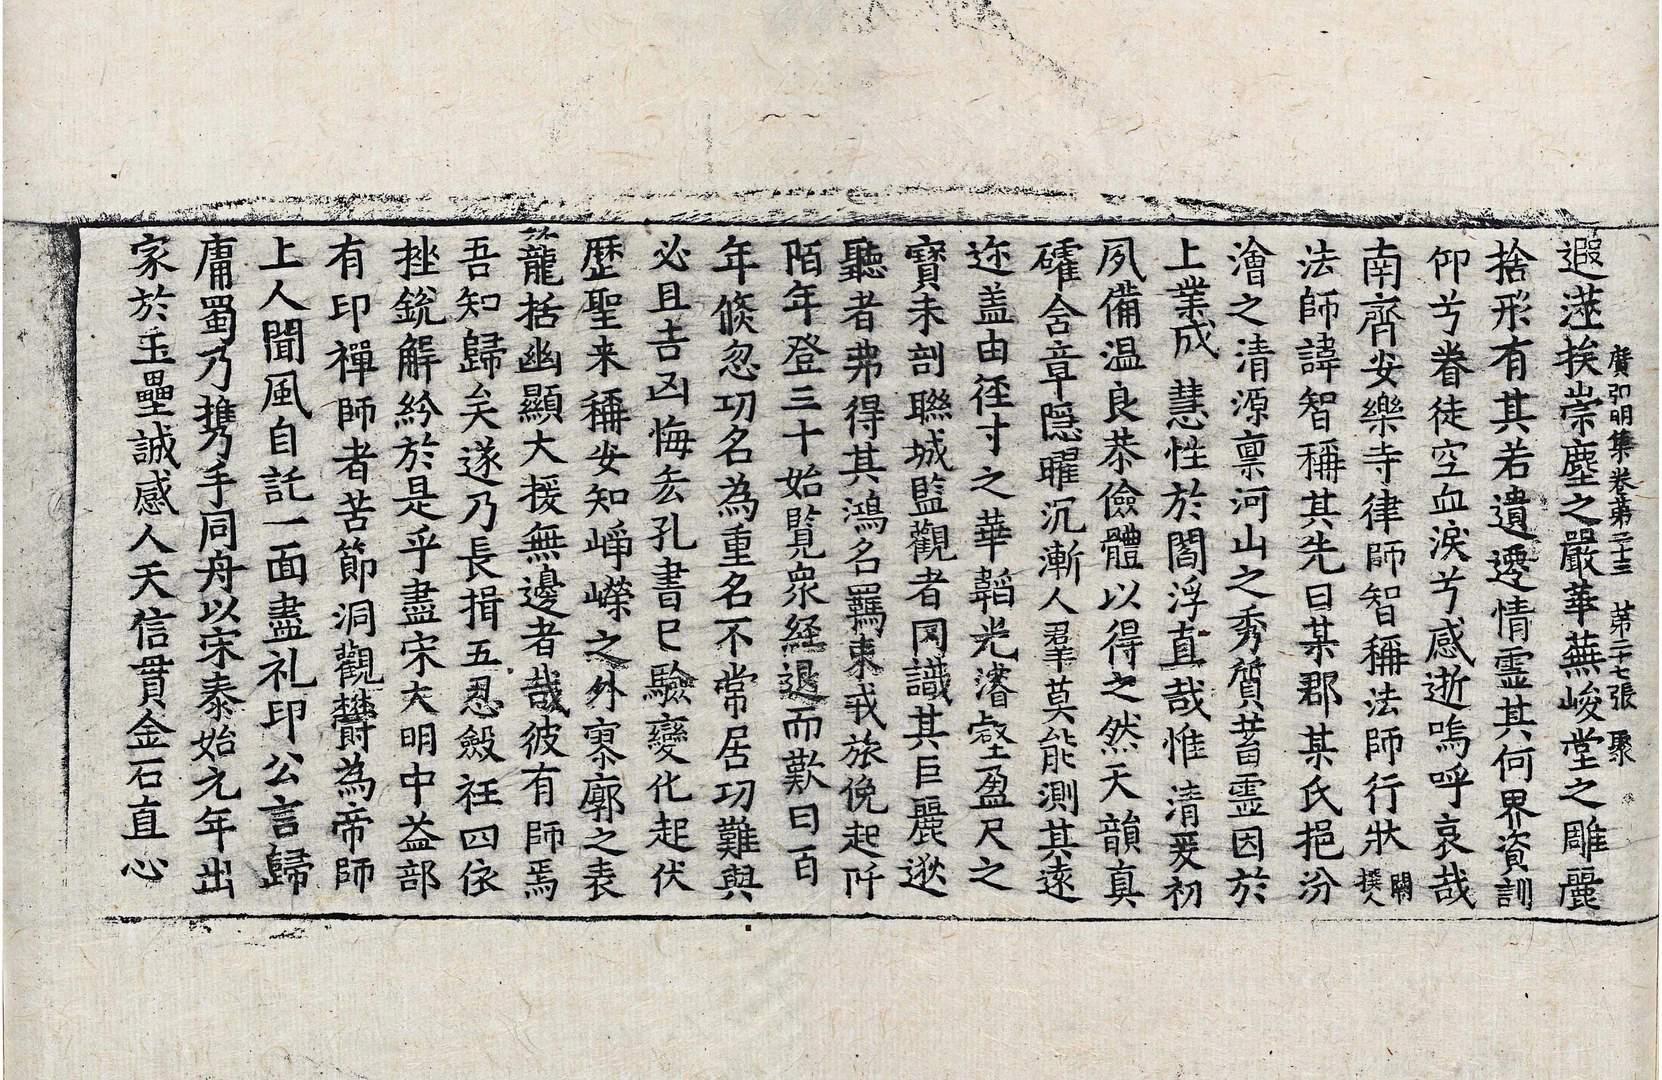 廣弘明集卷第二十三　第二十七張　聚
遐遊挨崇塵之嚴華蕪峻堂之雕麗
捨形有其若遺遷情靈其何界資訓
仰兮眷徒空血淚兮感逝嗚呼哀哉
南齊安樂寺律師智稱法師行狀 闕撰人
法師諱智稱其先曰某郡某氏挹汾
澮之清源稟河山之秀質蓄靈因於
上業成慧性於閻浮直哉惟清爰初
夙備温良恭儉體以得之然天韻真
礭含章隱曜沉漸人羣莫能測其遠
迩盖由徑寸之華韜光濬壑盈尺之
寳未剖聯城監觀者罔識其巨麗逖
聽者弗得其鴻名羈束戎旅俛起阡
陌年登三十始覽衆経退而歎曰百
年倐忽功名為重名不常居功難與
必且吉凶悔吝孔書已驗變化起伏
歷聖未稱安知崢嶸之外寥廓之表
籠括幽顯大援無邊者哉彼有師焉
吾知歸矣遂乃長揖五忍斂衽四依
挫銳解紛於是乎盡宋大明中益部
有印禪師者苦節洞觀欝為帝師
上人聞風自託一面盡礼印公言歸
庸蜀乃攜手同舟以宋泰始元年出
家於玉壘誠感人天信貫金石直心